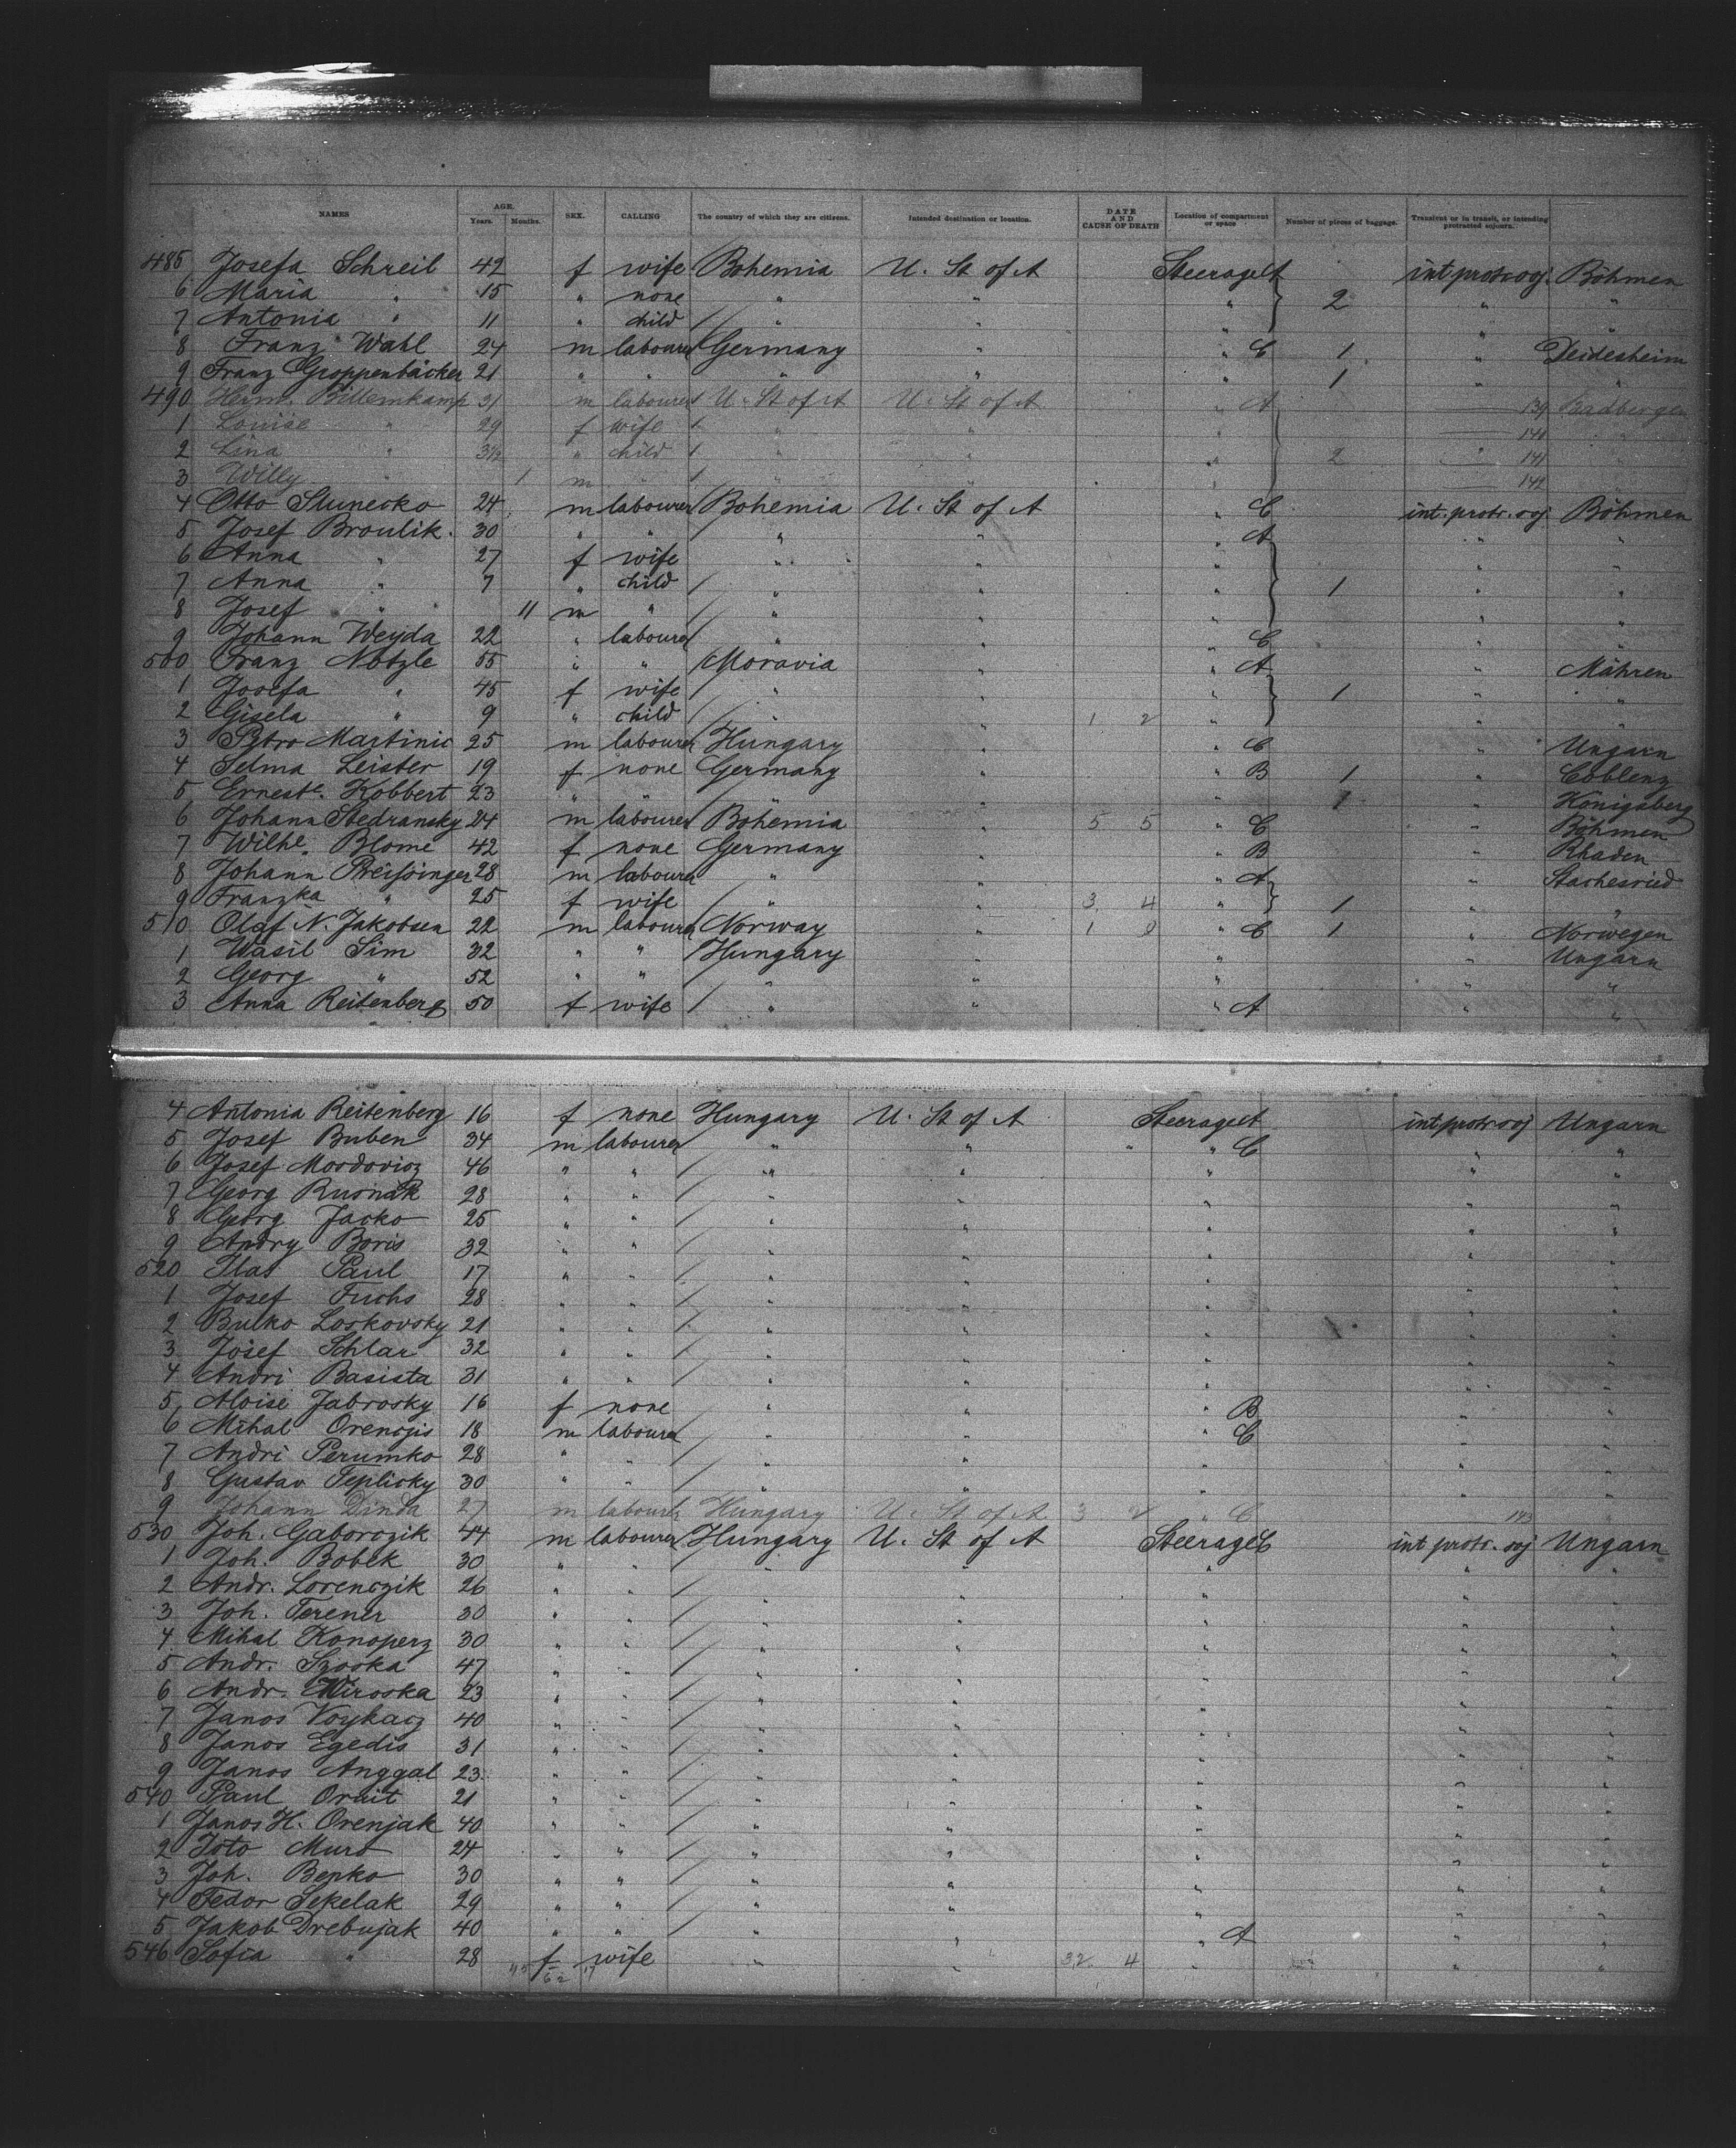 NAMES AGE. Years. Months. SEX. CALLING The country of which they are citizens. Intended destination or location. DATE AND CAUSE OF DEATH Location of compartment or space Number of pieces of baggage. Transient or in transit, or intending protracted sojourn.
485 Josefa Schreil 42 f wife Bohemia U. St of A Steerage A int protr soj. Böhmen
6 Maria " 15 " none " " " 2 " "
7 Antonia " 11 " child " " " " "
8 Franz Wahl 24 m labourer Germany " " C 1 " Deidesheim
9 Franz Groppenbäcker 21 " " " " " 1 " "
490 Herm. Billemkamp 31 m labourer U. St of A U. St of A " A 139 Badbergen
1 Louise " 29 f wife " " " 140 "
2 Lina " 3½ " child " " " 2 141 "
3 Willy " 1 m " " " " 142 "
4 Otto Slunecko 24 m labourer Bohemia U. St of A " C int. protr. soj Böhmen
5 Josef Broulik. 30 " " " " " A " "
6 Anna " 27 f wife " " " " "
7 Anna " 7 " child " " " 1 " "
8 Josef " 11 m " " " " " "
9 Johann Weyda 22 " labourer " " " C " "
500 Franz Notzle 55 " " Moravia " " A " Mähren
1 Josefa " 45 f wife " " " 1 " "
2 Gisela " 9 " child " " 1 2 " " "
3 Petro Martinic 25 m labourer Hungary " " C " Ungarn
4 Selma Leister 19 f none Germany " " B 1 " Coblenz
5 Ernest<sup>e</sup>. Kobbert 23 " " " " " 1 " Königsberg
6 Johann Stedransky 24 m labourer Bohemia " 5 5 " C " Böhmen
7 Wilhe. Blome 42 f none Germany " " B " Rhaden
8 Johann Preissinger 28 m labourer " " " A " Stachesried
9 Franzka " 25 f wife " " 3 4 " 1 " "
510 Olaf N. Jakobsen 22 m labourer Norway " 1 " C 1 " Norwegen
1 Wasil Sim 32 " " Hungary " " " Ungarn
2 Georg " 52 " " " " " " "
3 Anna Reitenberg 50 f wife " " " A " "
4 Antonia Reitenberg 16 f none Hungary U. St of A Steerage A int protr soj Ungarn
5 Josef Buben 34 m labourer " " " C " "
6 Josef Mordovicz 46 " " " " " " "
7 Georg Rusnak 28 " " " " " " "
8 Georg Jacko 25 " " " " " " "
9 Andry Boris 32 " " " " " " "
520 Ilas Paul 17 " " " " " " "
1 Josef Fuchs 28 " " " " " " "
2 Butko Loskovsky 21 " " " " " " "
3 Josef Schlar 32 " " " " " " "
4 Andri Basista 31 " " " " " " "
5 Aloise Jabrosky 16 f none " " " B " "
6 Mihal Orencjis 18 m labourer " " " C " "
7 Andri Perumko 28 " " " " " " "
8 Gustav Teplicky 30 " " " " " " "
9 Johann Dinda 27 m labourer Hungary U. St of A 3 2 " C 143 "
530 Joh. Gaborczik 44 m labourer Hungary U. St of A Steerage C int protr. soj Ungarn
1 Joh. Bobek 30 " " " " " " "
2 Andr. Lorenczik 26 " " " " " " "
3 Joh. Terener 30 " " " " " " "
4 Mihal Konoperz 30 " " " " " " "
5 Andr. Szoska 47 " " " " " " "
6 Andr. Wiroska 23 " " " " " " "
7 Janos Voykacz 40 " " " " " " "
8 Janos Egedis 31 " " " " " " "
9 Janos Anggal 23 " " " " " " "
540 Paul Oruit 21 " " " " " " "
1 Janos H. Orenjak 40 " " " " " " "
2 Joto Muro 24 " " " " " " "
3 Joh. Bepko 30 " " " " " " "
4 Fedor Sekelak 29 " " " " " " "
5 Jakob Drebujak 40 " " " " " A " "
546 Sofia " 28 f wife " " 32 4 " " "